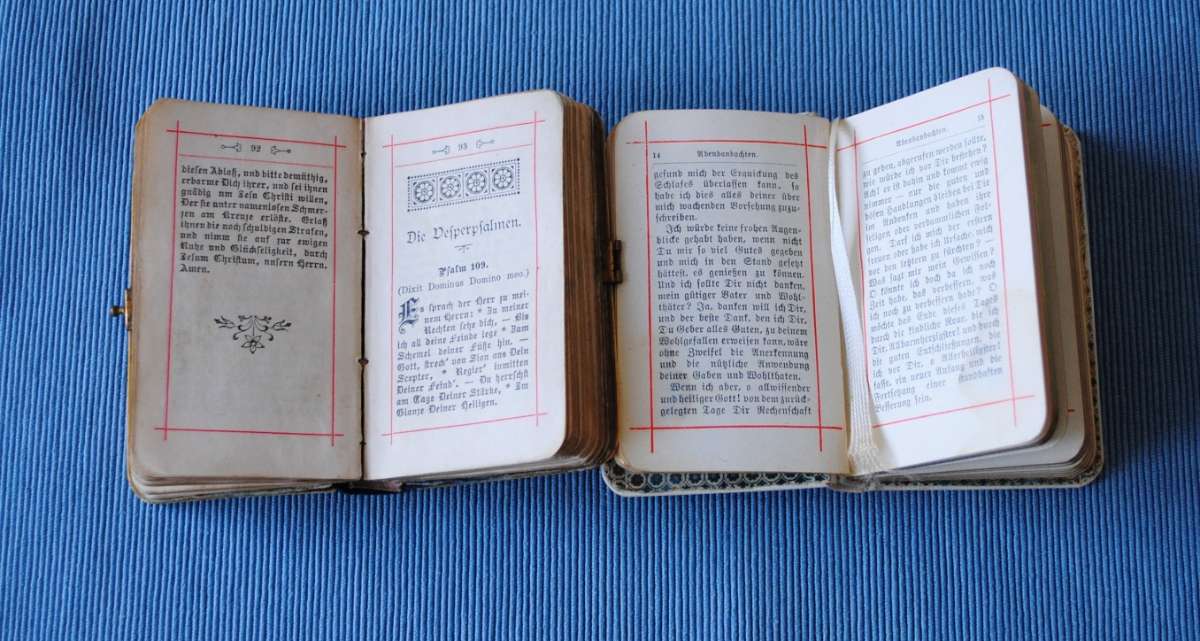 92
diesen Ablaß, und bitte demüthig,
erbarme Dich ihrer, und sei ihnen
gnädig um Jesu Christi willen,
Der sie unter namenlosen Schmer-
zen am Kreuze erlöste. Erlaß
ihnen die noch schuldigen Strafen,
und nimm sie auf zur ewigen
Ruhe und Glückseligkeit, durch
Jesum Christum, unsern Herrn.
Amen.
93
Die Vesperpsalmen.
Psalm 109.
(Dixit Dominus Domino meo.)
Es sprach der Herr zu mei-
nem Herrn: * Zu meiner
Rechten setze dich, — Bis
ich all deine Feinde lege * Zum
Schemel deiner Füße hin. —
Gott, streck' von Zion aus Dein
Scepter, * Regier' inmitten
Deiner Feind'. — Du herrschst
am Tage Deiner Stärke, * Im
Glanze Deiner Heiligen.
14 Abendandachten.
gesund mich der Erquickung des
Schlafes überlassen kann, so
habe ich dies alles deiner über
mich wachenden Vorsehung zuzu-
schreiben.
Ich würde keine frohen Augen-
blicke gehabt haben, wenn nicht
Du mir so viel Gutes gegeben
und mich in den Stand gesetzt
hättest, es genießen zu können.
Und ich sollte Dir nicht danken,
mein gütiger Vater und Wohl-
thäter? Ja, danken will ich Dir,
und der beste Dank, den ich Dir,
Du Geber alles Guten, zu deinem
Wohlgefallen erweisen kann, wäre
ohne Zweifel die Anerkennung
und die nützliche Anwendung
deiner Gaben und Wohlthaten.
Wenn ich aber, o allwissender
und heiliger Gott! von dem zurück-
gelegten Tage Dir Rechenschaft
Abendandachten. 15
zu geben, abgerufen werden sollte,
wie würde ich vor Dir bestehen?
Ach! er ist dahin und kommt ewig
nimmer — nur die guten und
bösen Handlungen bleiben bei Dir
im Andenken und haben ihre
seligen oder verdammlichen Fol-
gen. Darf ich mich der ersten
freuen oder habe ich Ursache, mich
vor den letztern zu fürchten? —
Was sagt mir mein Gewissen?
O könnte ich doch da ich noch
Zeit habe, das verbessern, was
ich noch zu verbessern habe? O
möchte das Ende dieses Tages
durch die kindliche Reue, die ich
Dir, Allbarmherzigster! und durch
die guten Entschließungen, die
ich der Dir, o Allerheiligster!
fasse, ein neuer Anfang und die
Fortsetzung einer standhaften
Besserung sein.